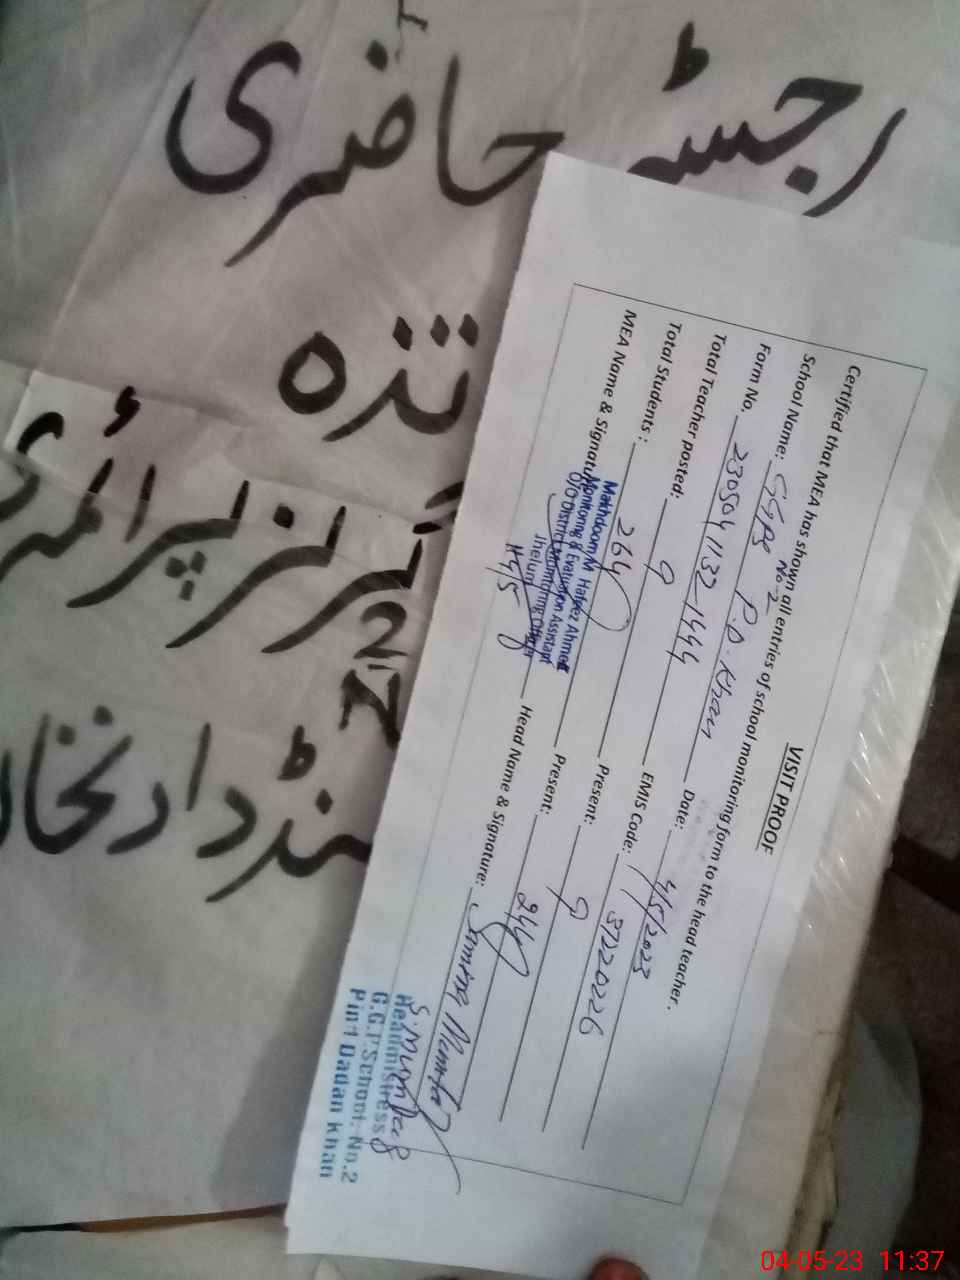 رجسٹر حاضری
تذہ
گرلز پرائمری
2
پنڈدادنخان
VISIT PROOF
Certified that MEA has shown all entries of school monitoring form to the head teacher.
School Name: GGPS No.2 P.D.Khan Date: 4/5/2023
Form No. 230504113214444 EMIS Code: 37220226
Total Teacher posted: 9 Present: 9
Total Students: 264 Present: 244
MEA Name & Signature Head Name & Signature: Samina Mumtaz
Makhdoom M Hafeez Ahmed
Monitoring & Evaluation Assistant
O/O District Monitoring Officer
Jhelum
1145
S.Mumtaz
Headmistress
G.G.P.School: No.2
Pind Dadan Khan
04-05-23 11:37